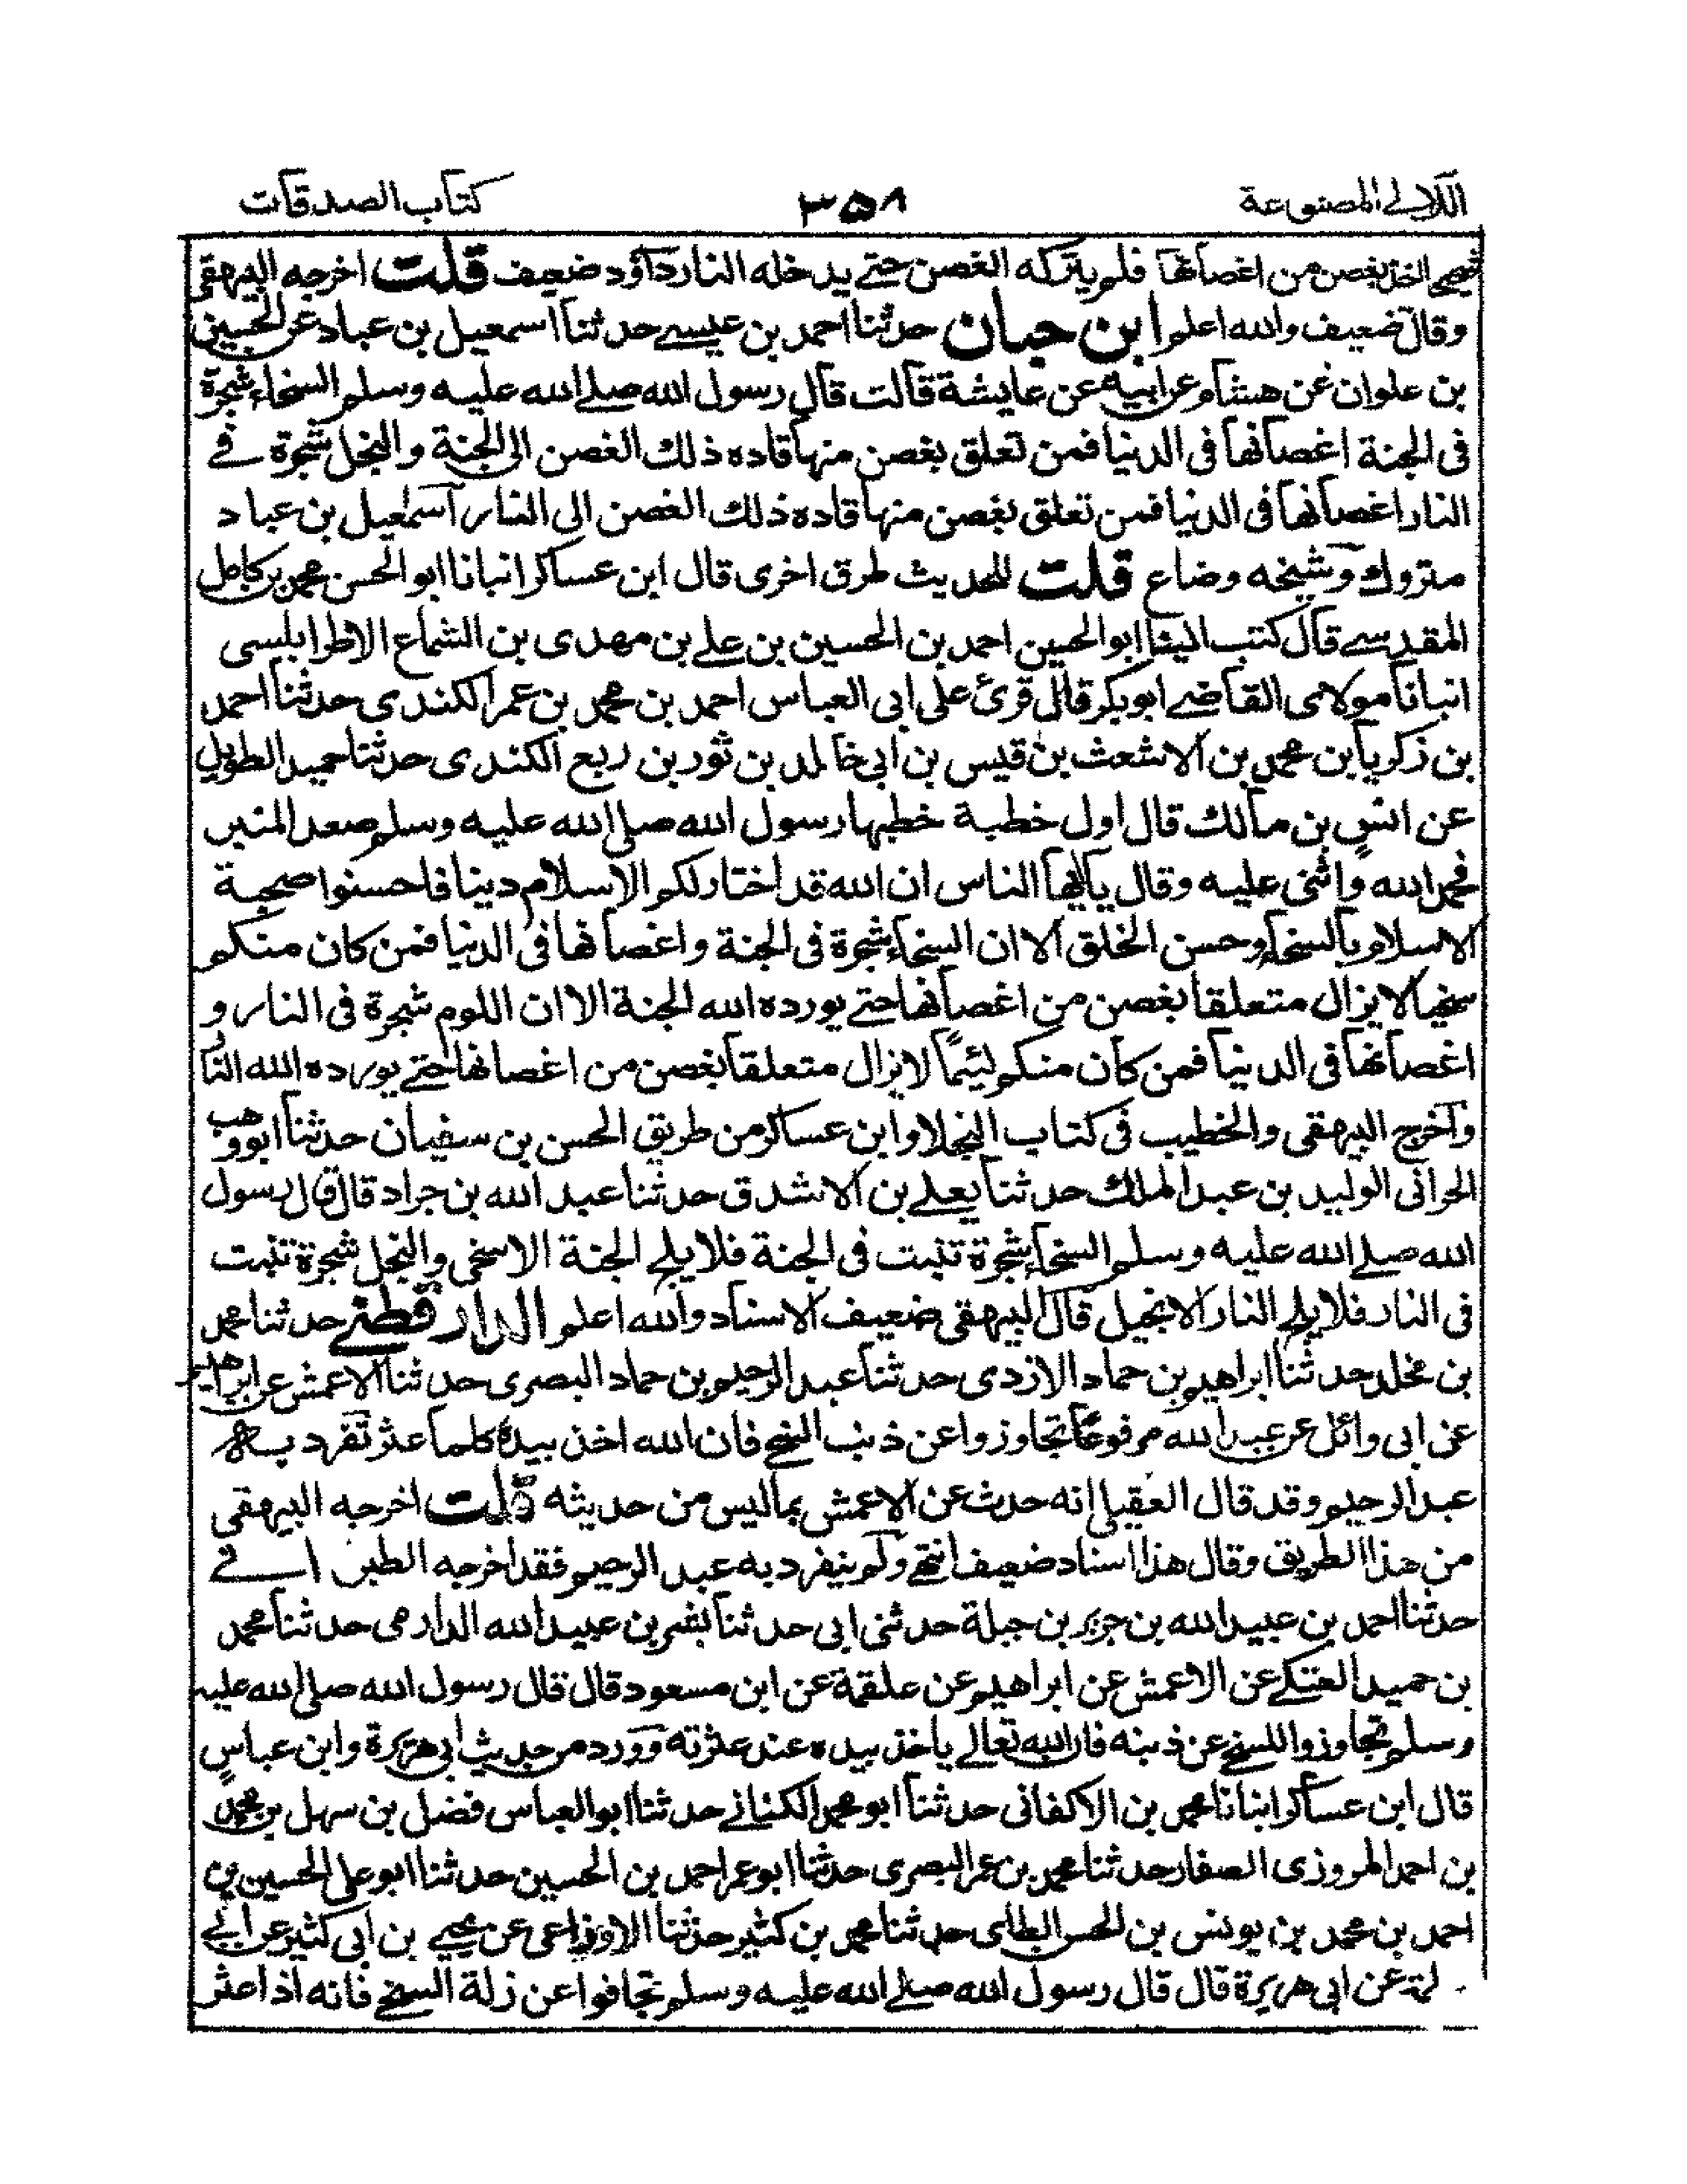 اللآلى المصنوعة ٣٥٨ كتاب الصدقات
شحيحا اخذ بغصن من اغصانها فلم يتركه الغصن حتے يدخله النار داؤد ضعيف قلت اخرجه البيهقى
وقال ضعيف والله اعلم ابن حبان حدثنا احمد بن عيسے حدثنا اسمعيل بن عباد عن الحسين
بن علوان عن هشام عن ابيه عن عايشة قالت قال رسول الله صلے الله عليه وسلم السخاء شجرة
فى الجنة اغصانها فى الدنيا فمن تعلق بغصن منها قاده ذلك الغصن الى الجنة والبخل شجرة فے
النار اغصانها فى الدنيا فمن تعلق بغصن منها قاده ذلك الغصن الى النار اسمعيل بن عباد
متروك وشيخه وضاع قلت للحديث طرق اخرى قال ابن عساكر انبانا ابو الحسن محمد بن كامل
المقدسے قال كتب الينا ابو الحسين احمد بن الحسين بن علے بن مهدى بن الشماع الاطرابلسى
انبانا مولاى القاضے ابو بكر قال قرئ على ابى العباس احمد بن محمد بن عمر الكندى حدثنا احمد
بن زكريا بن محمد بن الاشعث بن قيس بن ابى خالد بن ثور بن ربع الكندى حدثنا حميد الطويل
عن انس بن مالك قال اول خطبة خطبها رسول الله صلى الله عليه وسلم صعد المنبر
فحمد الله واثنى عليه وقال يا ايها الناس ان الله قد اختار لكم الاسلام دينا فاحسنوا صحبة
الاسلام بالسخاء وحسن الخلق الا ان السخاء شجرة فى الجنة واغصانها فى الدنيا فمن كان منكم
سخيا لا يزال متعلقا بغصن من اغصانها حتے يورده الله الجنة الا ان اللوم شجرة فى النار و
اغصانها فى الدنيا فمن كان منكم لئيمًا لا يزال متعلقا بغصن من اغصانها حتے يورده الله النار
واخرج البيهقى والخطيب فى كتاب البخلاء وابن عساكر من طريق الحسن بن سفيان حدثنا ابو وهب
الحرانى الوليد بن عبد الملك حدثنا يعلے بن الاشدق حدثنا عبد الله بن جراد قال قال رسول
الله صلے الله عليه وسلم السخاء شجرة تنبت فى الجنة فلا يلج الجنة الا سخى والبخل شجرة تنبت
فى النار فلا يلج النار الا بخيل قال البيهقى ضعيف الاسناد والله اعلم الدارقطنے حدثنا محمد
بن مخلد حدثنا ابراهيم بن حماد الازدى حدثنا عبد الرحيم بن حماد البصرى حدثنا الاعمش عن ابراهيم
عن ابى وائل عن عبد الله مرفوعًا تجاوزوا عن ذنب السخے فان الله اخذ بيده كلما عثر تفرد به
عبد الرحيم وقد قال العقيلى انه حدث عن الاعمش بما ليس من حديثه قلت اخرجه البيهقى
من هذا الطريق وقال هذا اسناد ضعيف انتهے ولم ينفرد به عبد الرحيم فقد اخرجه الطبرانے
حدثنا احمد بن عبيد الله بن جرير بن جبلة حدثنى ابى حدثنا بشر بن عبيد الله الدارمى حدثنا محمد
بن حميد العتكے عن الاعمش عن ابراهيم عن علقمة عن ابن مسعود قال قال رسول الله صلى الله عليه
وسلم تجاوزوا للسخے عن ذنبه فان الله تعالے ياخذ بيده عند عثرته وورد من حديث ابى هريرة وابن عباس
قال ابن عساكر انبانا محمد بن الاكفانى حدثنا ابو محمد الكنانے حدثنا ابو العباس فضل بن سهل بن محمد
بن احمد المروزى الصفار حدثنا محمد بن عمر البصرى حدثنا ابو عمر احمد بن الحسين حدثنا ابو على الحسين بن
احمد بن محمد بن يونس بن الحسن حدثنا محمد بن كثير حدثنا الاوزاعى عن يحيے بن ابى كثير عن ابے
عن ابى هريرة قال قال رسول الله صلے الله عليه وسلم تجافوا عن زلة السخے فانه اذا عثر